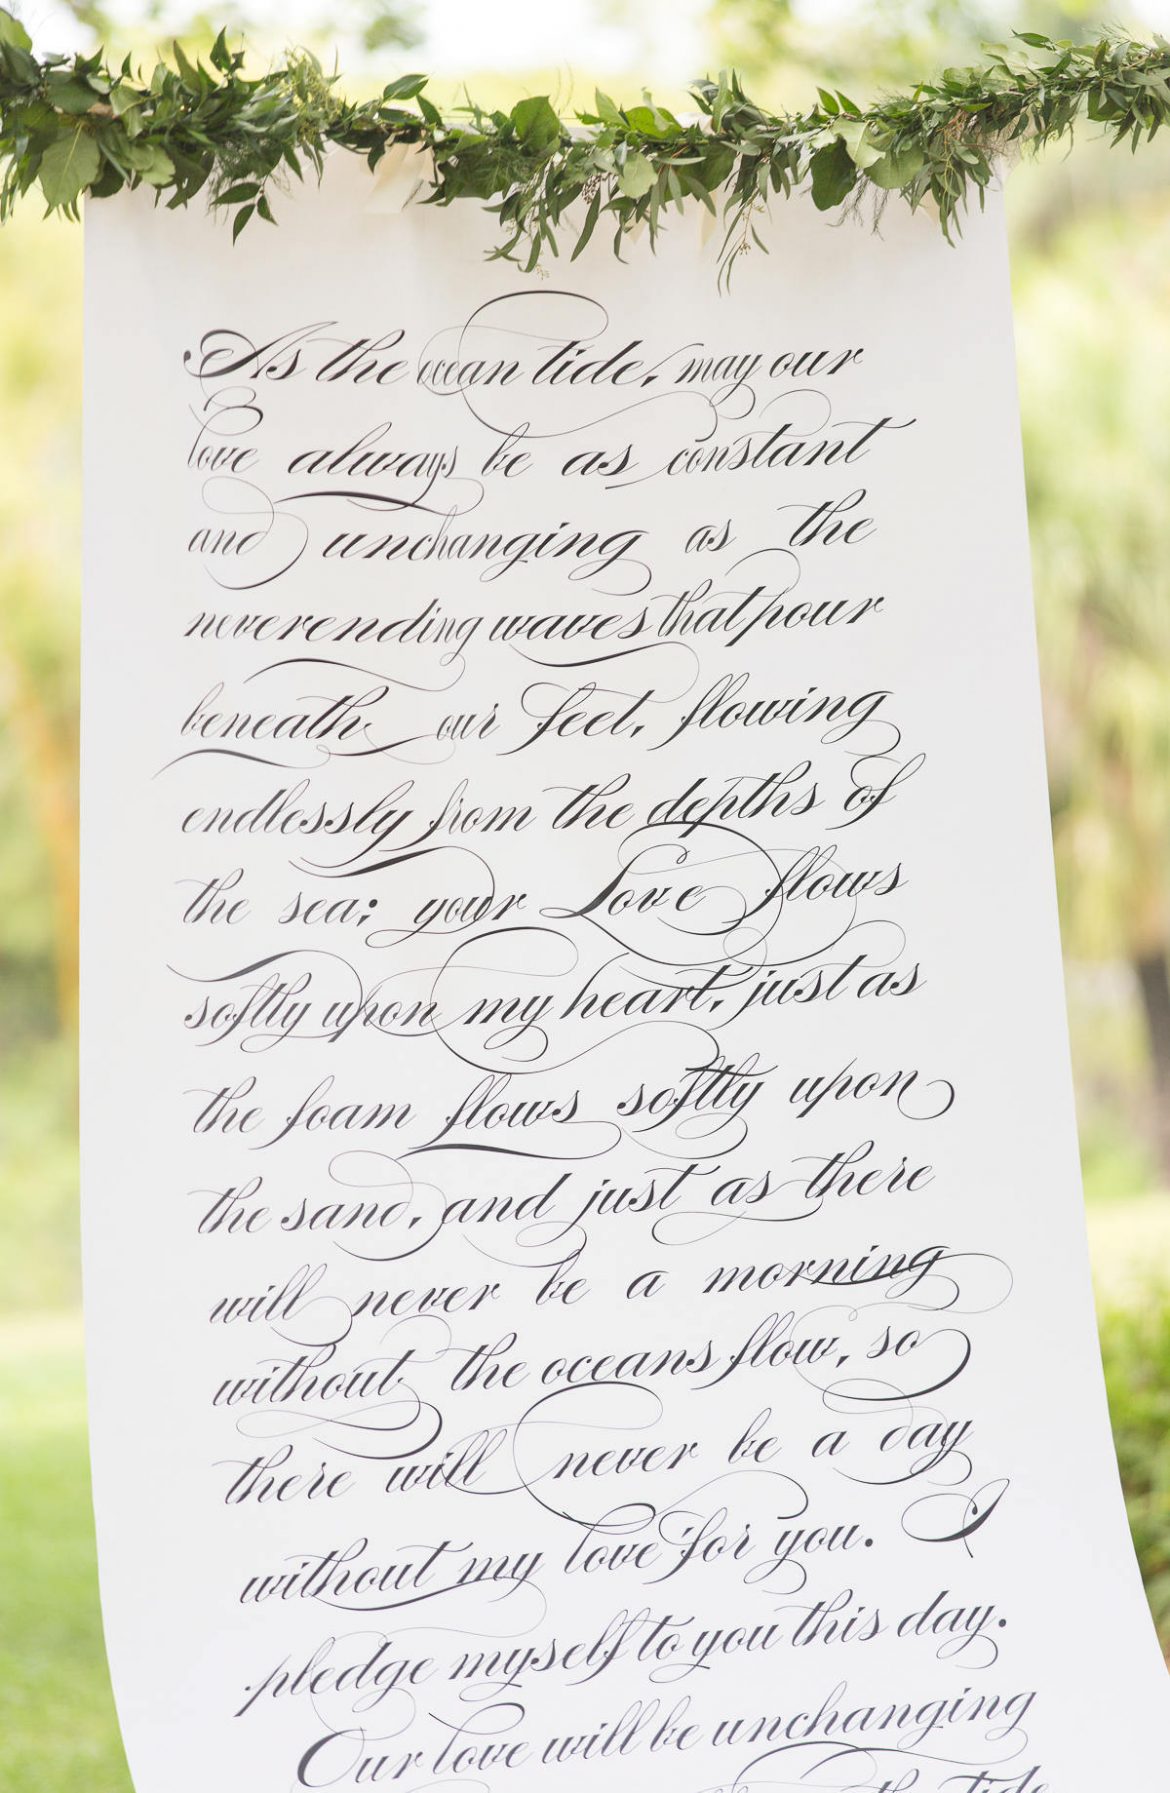 As the ocean tide, may our
love always be as constant
and unchanging as the
neverending waves that pour
beneath our feet, flowing
endlessly from the depths of
the sea; your Love flows
softly upon my heart, just as
the foam flows softly upon
the sand, and just as there
will never be a morning
without the oceans flow, so
there will never be a day
without my love for you. I
pledge myself to you this day.
Our love will be unchanging
the tide